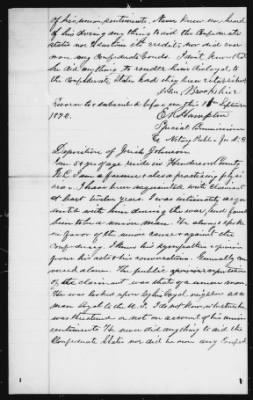 of his union sentiments. Never knew nor heard
of his doing any thing to aid the Confederate
States nor to sustain its credit, nor did ever
own any Confederate bonds. I don't know that
he did any thing to render him disloyal to
the Confederate States had they been established
John Brookshier
Sworn to & subscribed before me this 18th
1872.
C M Hampton
Special Commissioner
& Notary Public for N C
Deposition of Johnson
I am 59 years of age reside in Henderson County
N.C. I am a farmer & also a practicing physi
cian. I have been acquainted with claimant
at least twelve years. I was intimately acqua
inted with him during the war, and found
him to be a union man. He always spoke
in favor of the union cause & against the
Confederacy. I knew his sympathies & opinion
from his acts & his conversation. Generally con
versed alone. The public reputation
of the claimant was that of a union man.
He was looked upon by his loyal neighbors as a
man loyal to the U.S. I do not know whether he
was threatened or not on account of his union
sentiments. He never did any thing to aid the
Confederate States nor did he own any Confed